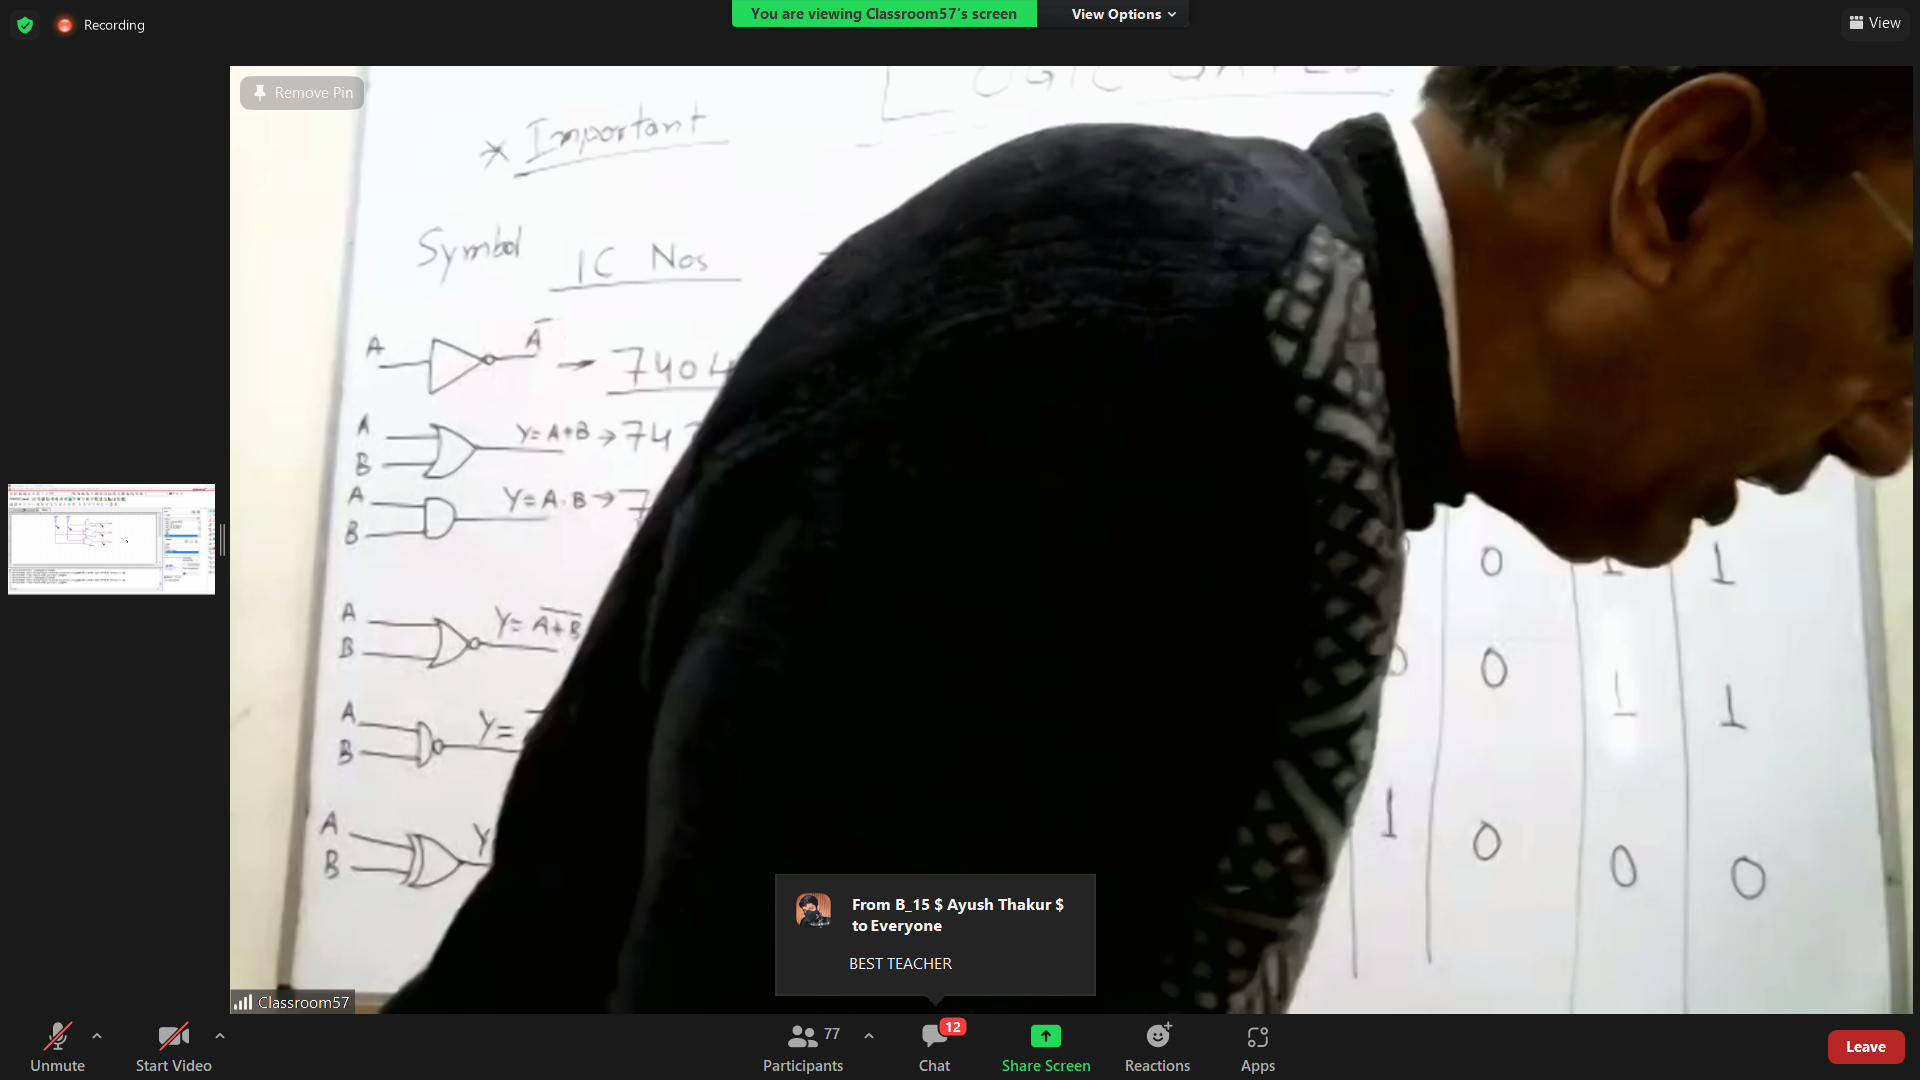 Recording
You are viewing Classroom57's screen
View Options
View
Remove Pin
LOGIC GATES
* Important
Symbol IC Nos
A Ā → 7404
A
B Y= A+B → 74
A
B Y= A.B → 7
A
B Y= \overline{A+B}
A
B Y=
A
B Y
0 1 1
0 1 1
1 0 0 0
From B_15 $ Ayush Thakur $
to Everyone
BEST TEACHER
Classroom57
Unmute
Start Video
77
Participants
12
Chat
Share Screen
Reactions
Apps
Leave